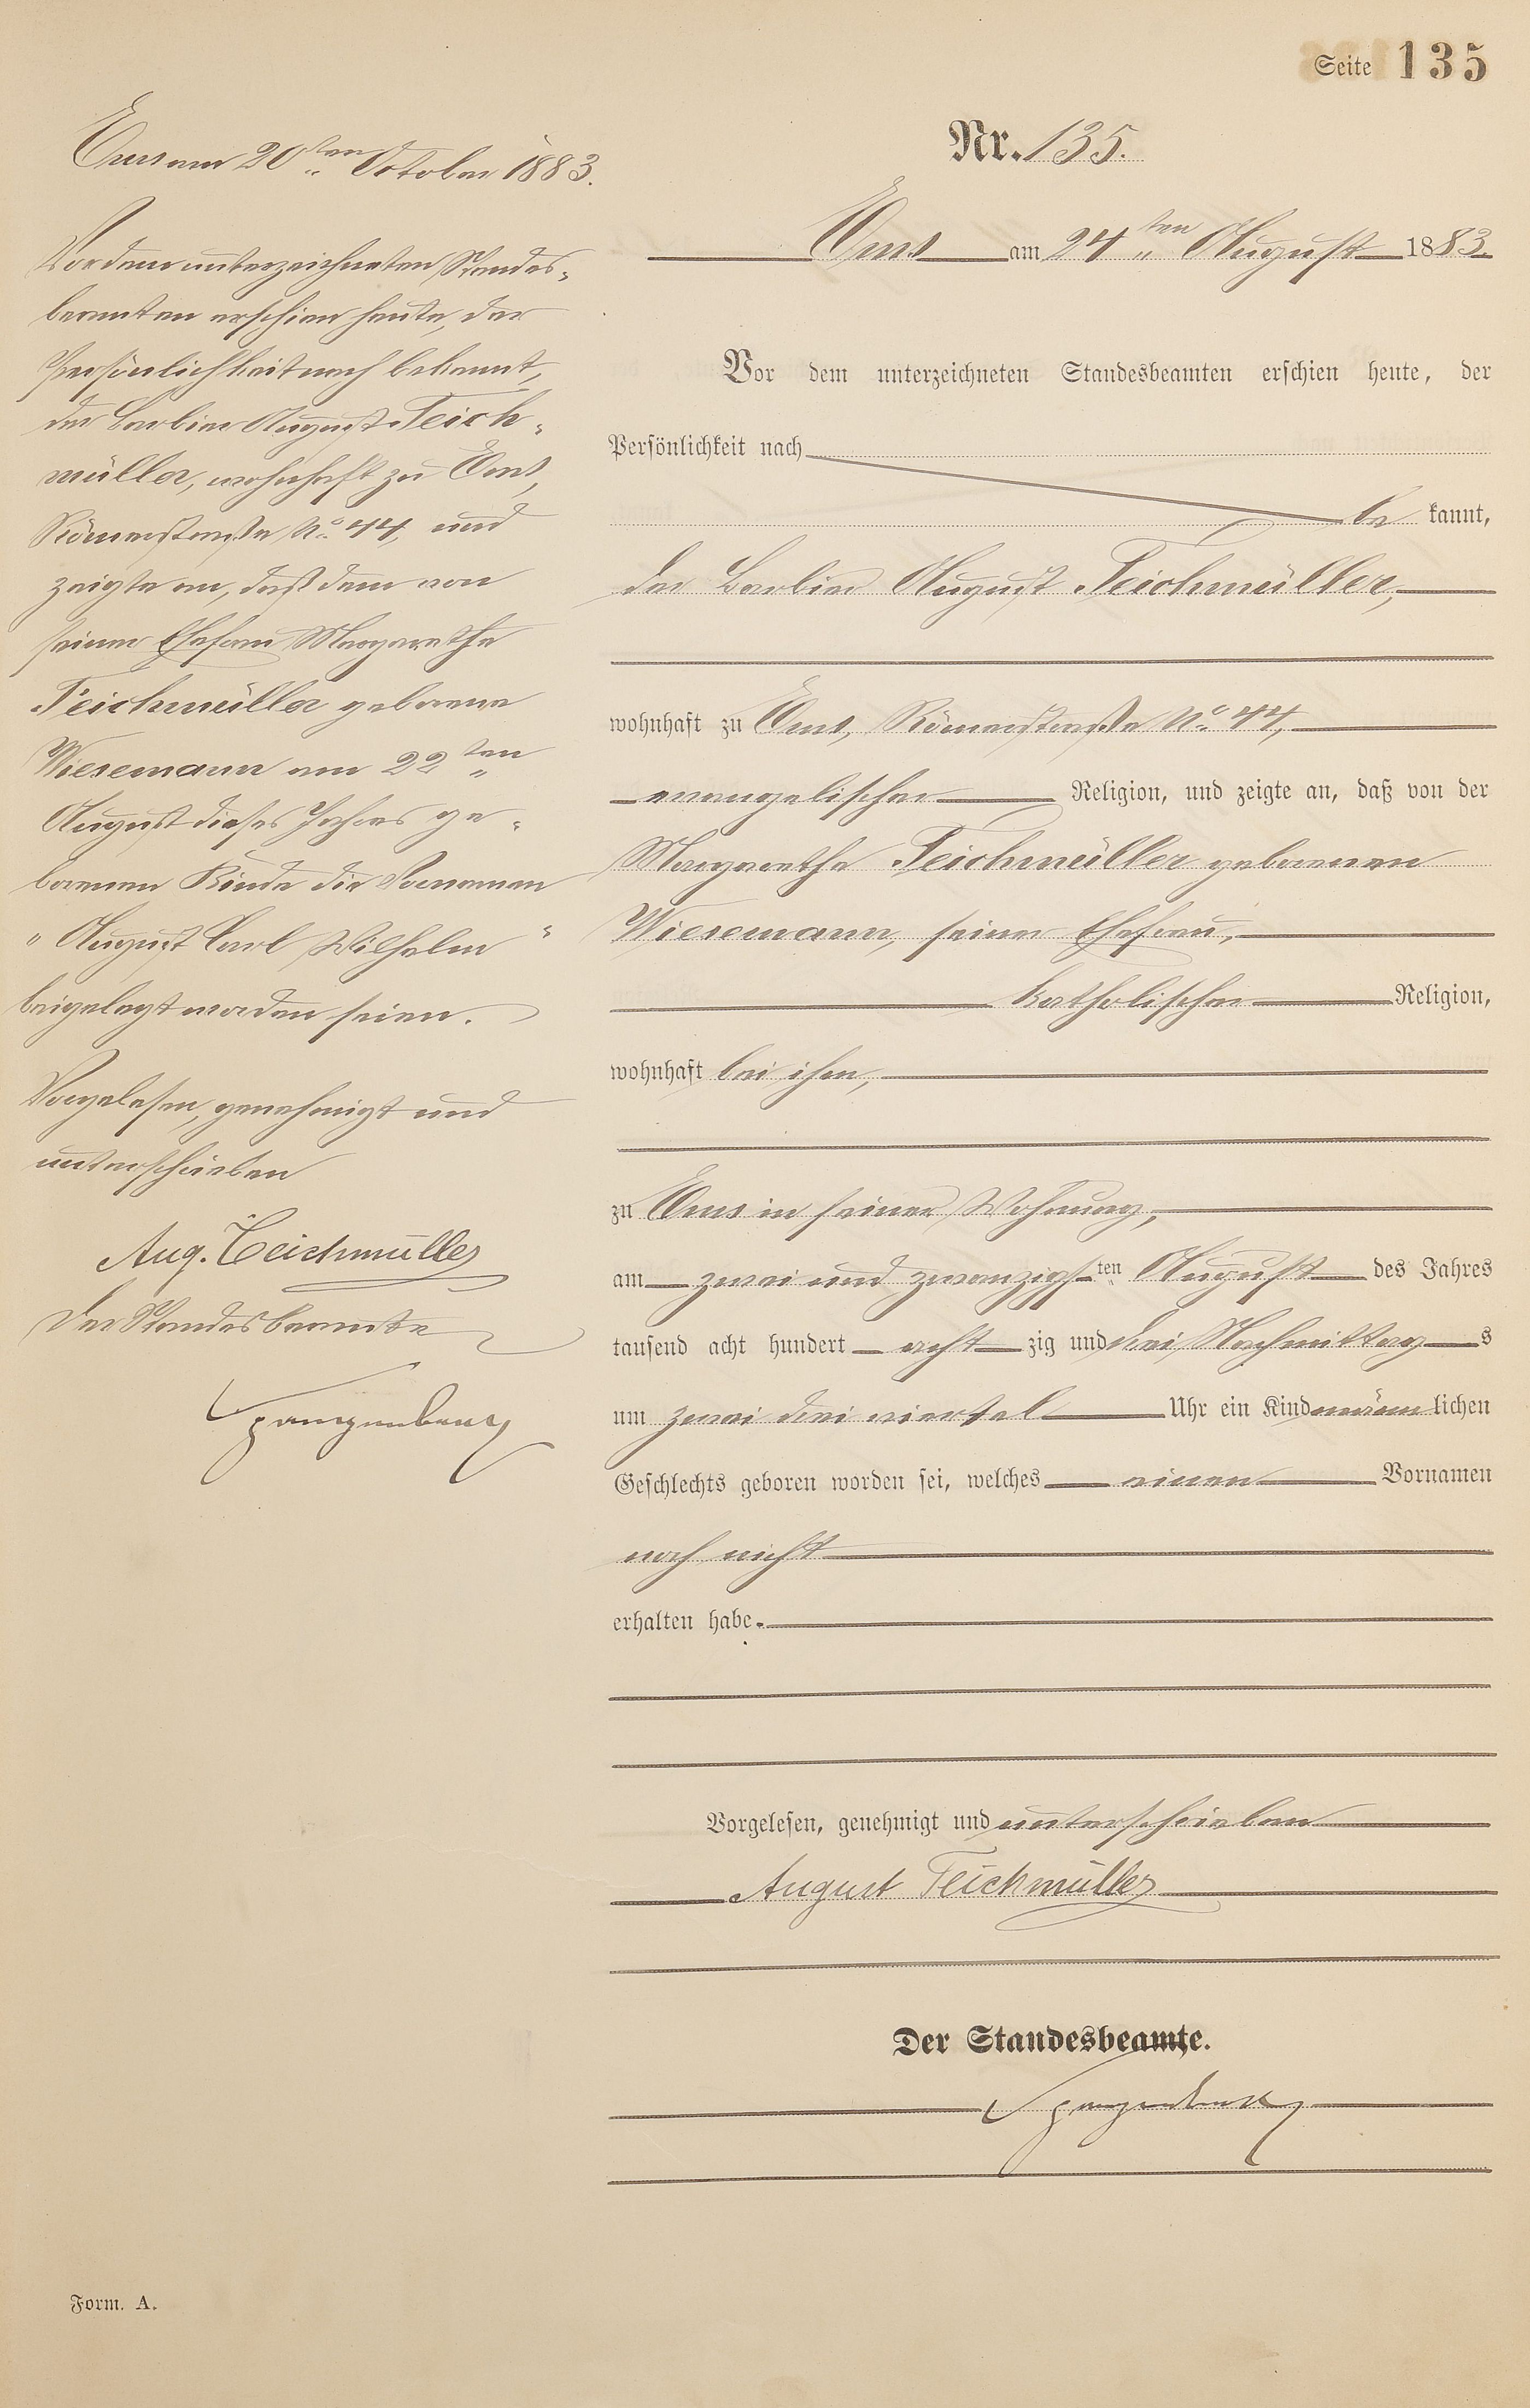 Seite 135
Nr. 135.
Ems am 24ten August 1883.
Vor dem unterzeichneten Standesbeamten erschien heute, der
Persönlichkeit nach
be kannt,
der Barbier August Teichmüller,
wohnhaft zu Ems, Römerstraße No. 44,
evangelischer Religion, und zeigte an, daß von der
Margarethe Teichmüller geborenen
Wiesemann, seiner Ehefrau,
katholischer Religion,
wohnhaft bei ihm,
zu Ems in seiner Wohnung,
am zwei und zwanzigsten August des Jahres
tausend acht hundert acht zig und drei, Nachmittag s
um zwei drei viertel Uhr ein Kind männ lichen
Geschlechts geboren worden sei, welches einen Vornamen
noch nicht
erhalten habe.
Vorgelesen, genehmigt und unterschrieben
August Teichmüller
Der Standesbeamte.
Spangenberg
Ems am 20ten October 1883.
Vor dem unterzeichneten Standes-
beamten erschien heute, der
Persönlichkeit nach bekannt,
der Barbier August Teich-
müller, wohnhaft zu Ems,
Römerstraße No. 44, und
zeigte an, daß dem von
seiner Ehefrau Margarethe
Teichmüller geborene
Wiesemann am 22ten
August dieses Jahres ge-
borenen Kinde die Vornamen
"August Carl Wilhelm"
beigelegt worden seien.
Vorgelesen, genehmigt und
unterschrieben
Aug. Teichmüller
Der Standesbeamte
Spangenberg
Form. A.